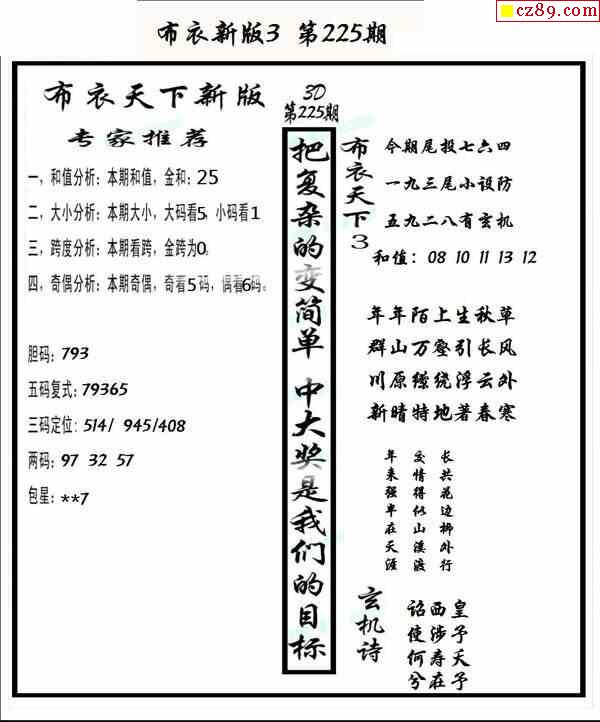 cz89.com
布衣新版3 第225期
布衣天下新版
专家推荐
一，和值分析：本期和值，金和：25
二，大小分析：本期大小，大码看5，小码看1
三，跨度分析：本期看跨，金跨为0。
四，奇偶分析：本期奇偶，奇看5码，偶看6码。
胆码：793
五码复式：79365
三码定位：514/ 945/408
两码：97 32 57
包星：**7
3D
第225期
把复杂的变简单 中大奖是我们的目标
布衣天下3
今期尾投七六四
一九三尾小设防
五九二八有玄机
和值：08 10 11 13 12
年年陌上生秋草
群山万壑引长风
川原缭绕浮云外
新晴特地著春寒
长共花边柳外行
交情得似山溪渡
年来强半在天涯
玄机诗
诏西皇
使涉予
何寿夭
兮在予